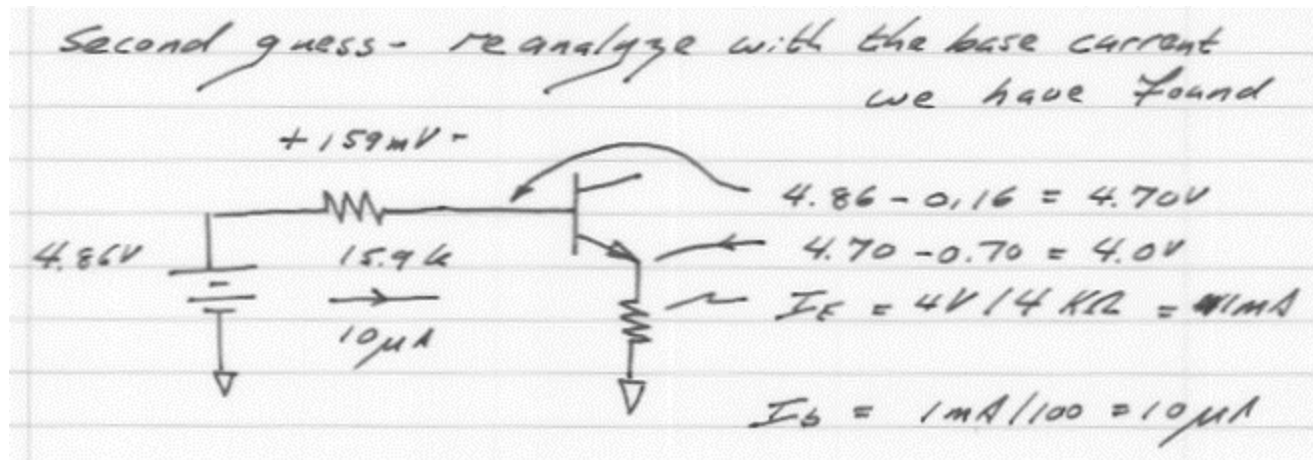 Second guess - reanalyze with the base current
we have found
+ 159mV -
4.86 - 0.16 = 4.70V
4.86V
15.9k
4.70 - 0.70 = 4.0V
IE = 4V / 4 KΩ = 1mA
10μA
Ib = 1mA/100 = 10μA